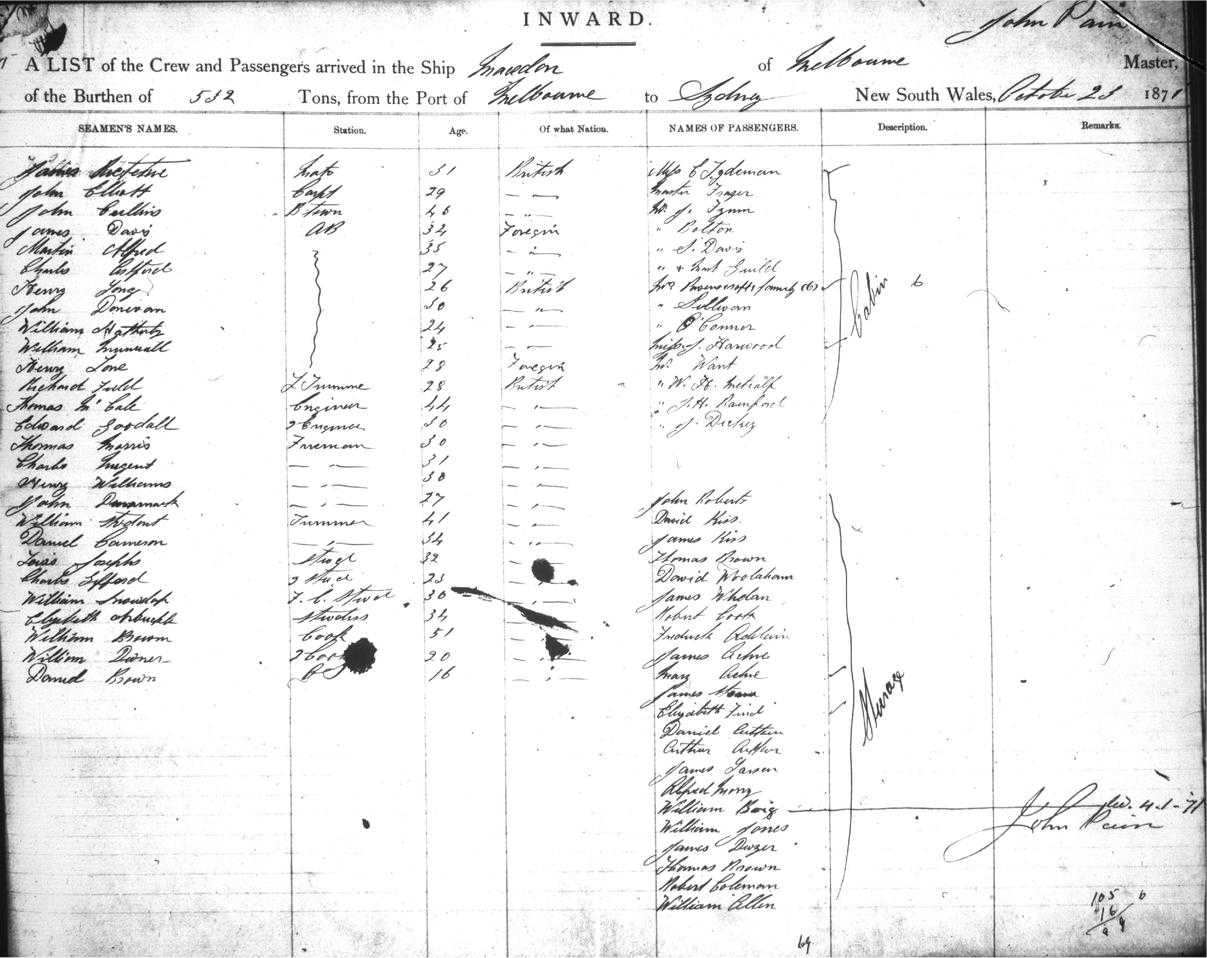 INWARD.
John Pain
A LIST of the Crew and Passengers arrived in the Ship Macedon of Melbourne Master,
of the Burthen of 532 Tons, from the Port of Melbourne to Sydney New South Wales, October 23 1871
SEAMEN'S NAMES. Station. Age. Of what Nation. NAMES OF PASSENGERS. Description. Remarks.
James Mate 31 British Miss C Tydeman
John Elliott Carpt 29 — „ — Master Frazer
John Cullins 46 — „ — Mr. J. Fynn
James Davis AB 32 Foregin " Bolton
Martin Alfred 35 — „ — " S. Davis
Charles Ashford 27 — „ — " & Mast Guild
Henry Long 26 British Mrs family (6)
John Donovan 30 — „ — " Sullivan
William 24 — „ — " O'Connor
William 25 — „ — Miss J. Harwood
Henry Lone 28 Foregin Mr. Want
Richard Field 28 British " W. H. Metcalf
Thomas McCale Engineer 44 — „ — " J. H. Rainford
Edward Goodall 2 Engineer 30 — „ — " J. Dickey
Cabin 6
Thomas Morris Fireman 30 — „ —
Charles Nugent — „ — 31 — „ —
Henry Williams — „ — 38 — „ —
John — „ — 27 — „ — John Roberts
William Trimmer 41 — „ — David Kiss
Daniel Cameron — „ — 34 — „ — James Kiss
Louis Josephs Stwd 32 Thomas Brown
Charles Gifford 2 Stwd 23 David Woolaham
William F. C. Stwd 30 James Whelan
Elizabeth Stwdess 34 Robert Cook
William Brown Cook 51 Fredrick Baldwin
William Dixner 2 Cook 20 James
Daniel Brown 16 Mary
James
Elizabeth Find
Daniel
Arthur Arthur
James Larsen
Alfred Mory
William
William Jones
James Dwyer
Thomas Brown
Robert Coleman
William Allen
Sturage
John Pain
105 6
16
9 9
69